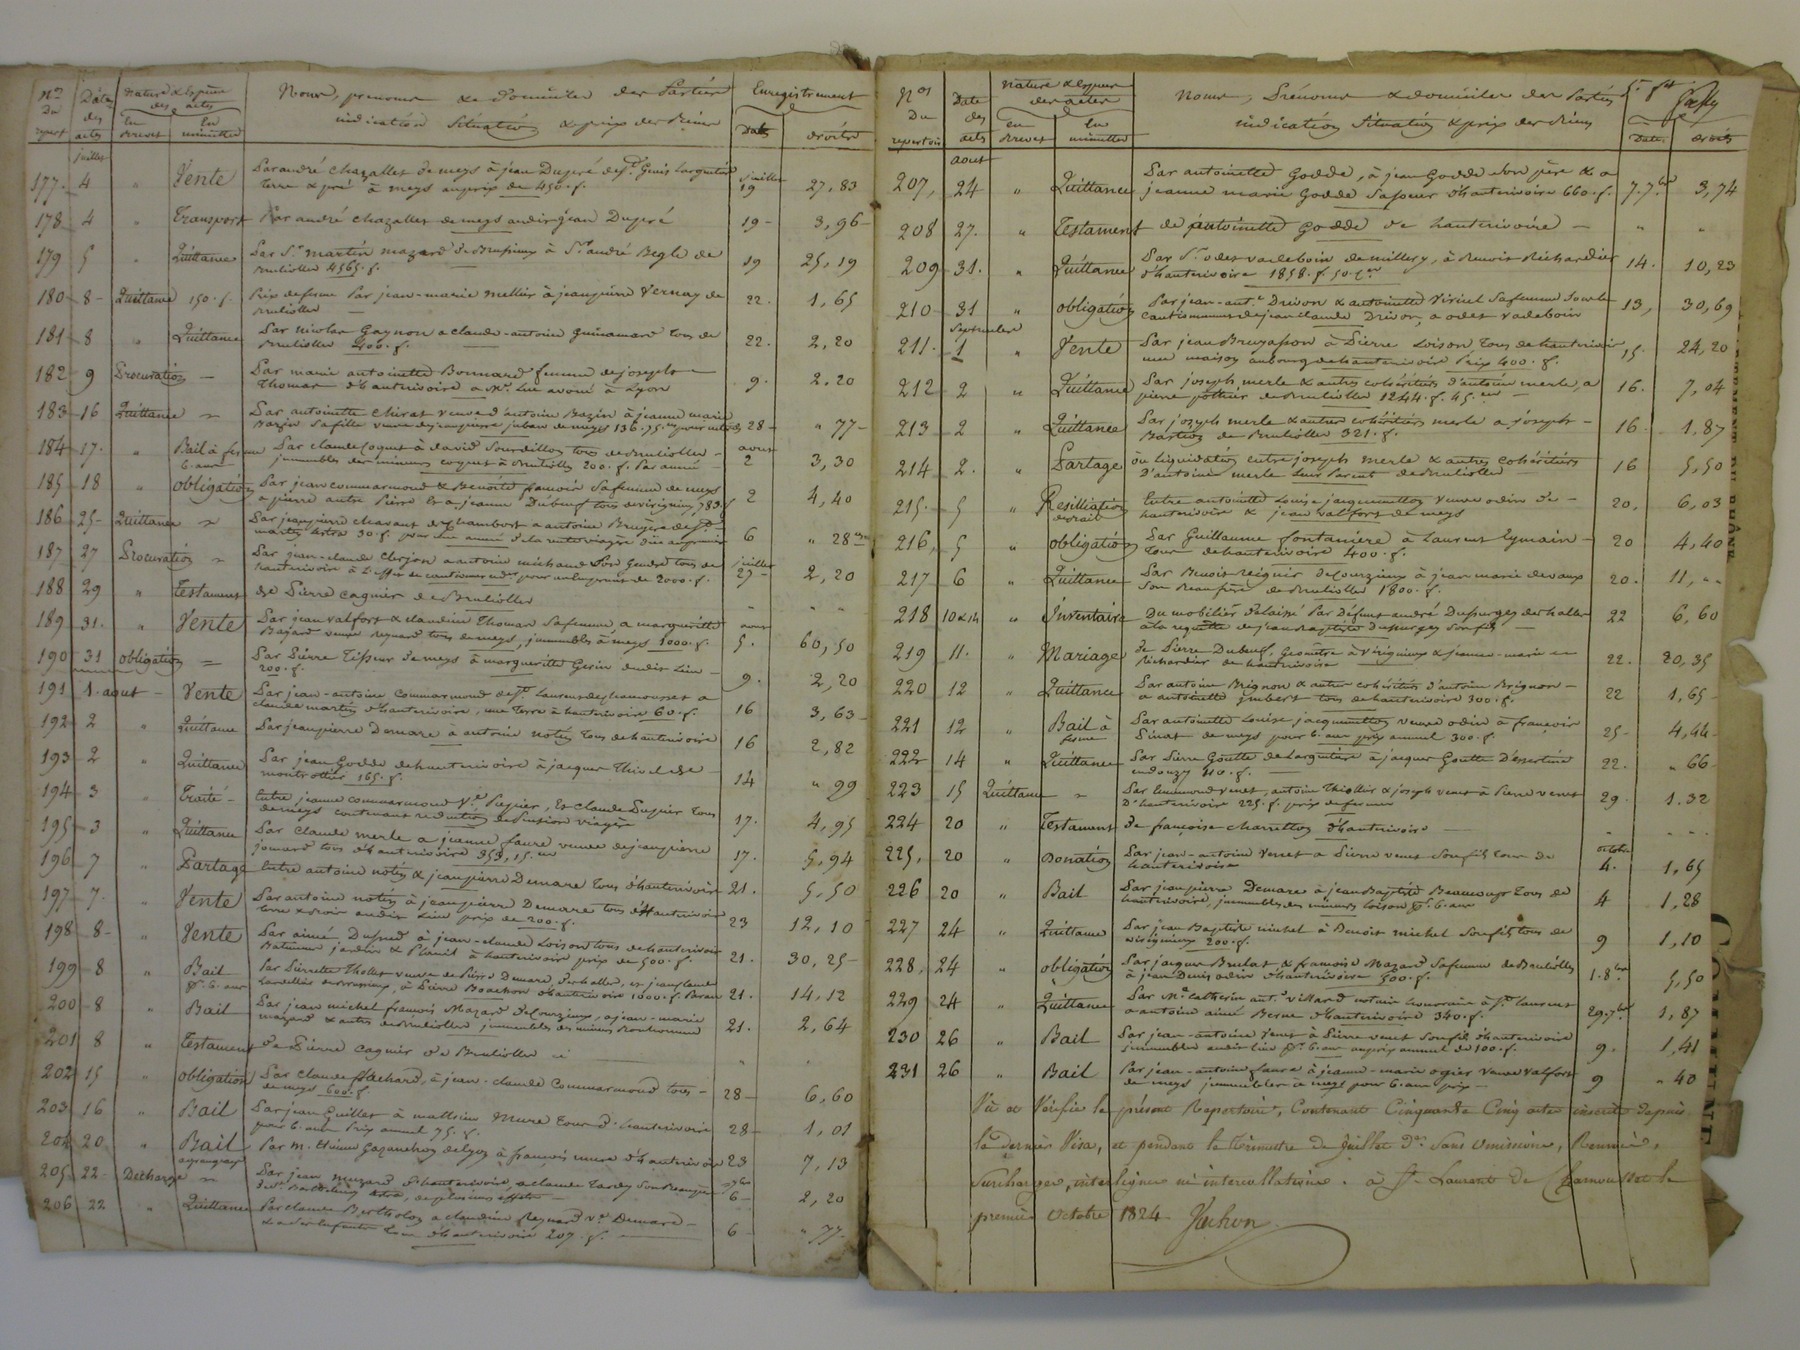 nos Du repert | Date des actes | nature & espece des actes | En Brevet | En minutte | Noms, prenoms & domicile des Parties indication Situation & prix des Biens | Enregistrement | Date | droits
juillet
177. 4 " Vente Par andré chazallet de meys à jean Duperé de st Genis largentier juillet
terre & pré à meys au prix de 450. f. 19 27,83
178 4 " Transport Par andré chazallet de meys audit jean Duperé 19 - 3,96
179 5 " Quittance Par Sr martin mazard de Brussieux à Sr andré Begle de
Brullioller 4565. f. 19 25,19
180 8 - Quittance 150. f. Prix de ferme Par jean-marie mellier à jean pierre Vernay de
Brullioller 22. 1,65
181 8 " Quittance Par nicolas Gaynon a claude-antoine guinamard tous de
Brullioller 400. f. 22. 2,20
182 9 Procuration - Par marie antoinette Bonnard femme de joseph
Thomas d'hauterivoire a Mr. avoué à Lyon 9. 2,20
183 16 Quittance " Par antoinette chirat veuve d'antoine Bazin à jeanne marie
Bazin sa fille veuve de de meys 136.75. 28 - " 77 -
184 17. " Bail à ferme Par claude Coquet à david Sourdillon tous de Brullioller - aoust
6. ans immeubles des mineurs coquet à Brullioller 200. f. Par année 2 3,30
185 18 " obligation Par jean commarmond & Benoite francois Sa femme de meys
a pierre autre Pierre & a jeanne Dubeuf tous de virigneux 783. f. 2 4,40
186 25 - Quittance " Par jean pierre chavant de chambost a antoine Bruyere de st
martin 30. f. pour une année de la rente viagère 6 " 28
187 27 Procuration " Par jean-claude Clerjon a antoine michaud son Gendre tous de juillet
hauterivoire à l'effet de pour un emprunt de 2000. f. 27 - 2,20
188 29 " Testament de Pierre cagnier de Brullioller " " "
189 31. " Vente Par jean valfort & claudine Thomas Sa femme a marguerite aoust
Bajard veuve reynard tous de meys, immeubles à meys 1000. f. 5. 60,50
190 31 obligation = Par Pierre Tisseur de meys à marguerite Gerin dudit Lieu -
200. f. 9. 2,20
191 1. aoust - Vente Par jean-antoine commarmond de st Laurent de chamousset a
claude martin d'hauterivoire, une Terre à hauterivoire 60. f. 16 3,63
192 2 " Quittance Par jean pierre Demare à antoine notin tous de hauterivoire 16 2,82
193 2 " Quittance Par jean Godde de hauterivoire à jacques Thivel de
montrottier 165. f. 14 " 99
194 3 " Traité - Entre jeanne commarmond Ve. Pupier, Et claude Pupier tous
de meys contenant reduction de Pension viagère 17. 4,95
195 3 " Quittance Par Claude merle a jeanne faure veuve de jean pierre
joanard tous d'hauterivoire 359, 15. 17. 5,94
196 7 " Partage Entre antoine notin & jean pierre Demare tous d'hauterivoire 21. 5,50
197 7. " Vente Par antoine notin à jean pierre Demare tous d'hauterivoire
terre & audit Lieu prix de 200. f. 23 12,10
198 8 - " Vente Par aimé à jean-claude Loison tous de hauterivoire
Batiment jardin & à hauterivoire prix de 500. f. 21. 30,25
199 8 " Bail Par Pierrette Thollet veuve de Pierre Demare, de haller, et jean claude
pr. 6. ans de Brussieux, à Pierre Bouchon d'hauterivoire 1000. f. Par an 21. 14,12
200 8 " Bail Par jean michel francois Mazard de Courzieux, a jean-marie
mazard & autres de Brullioller immeubles des mineurs 21. 2,64
201 8 " Testament de Pierre cagnier de Brullioller " "
202 15 " obligation Par claude flachard, à jean-claude Commarmond tous -
de meys 600. f. 28 - 6,60
203 16 " Bail Par jean Guillet à mathieu Mure tous d'hauterivoire
pour 6. ans Prix annuel 75. f. 28 - 1,01
204 20 " Bail Par M. Etienne Gazanchon de Lyon à francois mure d'hauterivoire 23 7,13
205 22 - Decharge " Par jean Muzard d'hauterivoire, a claude Tardy son Beaupère 7bre
de plusieurs effets 6 - 2,20
206 22 " Quittance Par claude Bertholon a claudine Reynard ve Demare
& a ses Enfants tous d'hauterivoire 207. f. 6 " 77
Nos Du repertoire | Date des actes | nature & espece des actes | En Brevet | En minutte | Noms, Prénoms & domicile des Parties indication Situation & prix des Biens | Date | droits
aoust
207, 24 " Quittance Par antoinette Godde, à jean Godde son père & a
jeanne marie Godde Sa soeur d'hauterivoire 660. f. 7. 7.bre 3,74
208 27. " Testament de antoinette Godde de hauterivoire - " "
209 31. " Quittance Par Sr. odet vadeboin de millery, à Benoit Richardier
d'hauterivoire 1858. f. 50. 14. 10,23
210 31 " obligation Par jean-ant.e Drivon & antoinette Viricel Sa femme Sous le
cautionnement de jean claude Drivon, a odet vadeboin 13, 30,69
septembre
211. 1 " Vente Par jean Bruyasson à Pierre Loison tous de hauterivoire
une maison au bourg de hauterivoire Prix 400. f. 15. 24,20
212 2 " Quittance Par joseph merle & autres cohéritiers d'antoine merle, a
pierre pothier de Brullioller 1244. f. 45. 16. 7,04
213 2 " Quittance Par joseph merle & autres cohéritiers merle a joseph -
Bastion de Brullioller 321. f. 16 1,87
214 2. " Partage ou liquidation entre joseph merle & autres cohéritiers
D'antoine merle Leur Parent de Brullioller 16 5,50
215. 5 " Resilliation Entre antoinette Louise jacquemetton veuve odin de -
de bail hauterivoire & jean valfort de meys 20. 6,03
216 5 " obligation Par Guillaume fontaniere a Laurent Eymain -
Tous de hauterivoire 400. f. 20 4,40
217 6 " Quittance Par Benoit reignir de Courzieux à jean marie devaux
Son Beau frère de Brullioller 1800. f. 20. 11, "
218 10 & 14 " Inventaire Du mobilier delaissé Par Defunt andré Dussurgey des halles
à la requête de jean Baptiste Dussurgey Son fils 22 6,60
219 11. " Mariage de Pierre Dubeuf, Geometre à Virigneux & jeanne-marie
Richardier de hauterivoire 22. 20,35
220 12 " Quittance Par antoine Brignon & autres cohéritiers d'antoine Brignon -
a antoinette jmbert tous de hauterivoire 300. f. 22 1,65
221 12 " Bail à Par antoinette Louise jacquemetton veuve odin à francois
ferme Pinat de meys pour 6. ans prix annuel 300. f. 25 - 4,44
222 14 " Quittance Par Pierre Goutte de Largentière à jacques Goutte D'essertines
en donzy 110. f. 22. " 66
223 15 Quittance " Par venet, antoine Thiollier & joseph venet à Pierre venet
D'hauterivoire 225. f. prix de ferme 29. 1.32
224 20 " Testament de francoise charretton d'hauterivoire - - - -
225, 20 " Donation Par jean-antoine Venet a Pierre venet Son fils tous de octobre
hauterivoire 4. 1,65
226 20 " Bail Par jean pierre Demare à jean Baptiste Beaucoup tous de
hauterivoire, immeubles des mineurs Loison pr. 6. ans 4 1,28
227 24 " Quittance Par jean Baptiste michel à Benoit michel Son fils tous de
virigneux 200. f. 9 1,10
228, 24 " obligation Par jacques Brulat & francoise Mazard Sa femme de Brullioller
à jean Denis odin d'hauterivoire 500. f. 1. 8bre 5,50
229 24 " Quittance Par Me catherin ant.e Villard notaire honoraire à St. Laurent
a antoine aimé Berne d'hauterivoire 340. f. 29. 7bre 1,87
230 26 " Bail Par jean-antoine Venet à Pierre venet Son fils d'hauterivoire
immeubles audit lieu pr. 6. ans au prix annuel de 100. f. 9. 1,41
231 26 " Bail Par jean-antoine faure à jeanne-marie ogier veuve valfort
de meys immeubles à meys pour 6. ans prix - 9 " 40
Vu et Vérifié le présent Repertoire, Contenant Cinquante Cinq actes inscrits depuis
le dernier Visa, et pendant le trimestre de Juillet dr. Sans omissions, Renvois,
Surcharges, interlignes ni intercallations. à St. Laurent de Chamousset le
premier octobre 1824 Vachon
COMMUNE